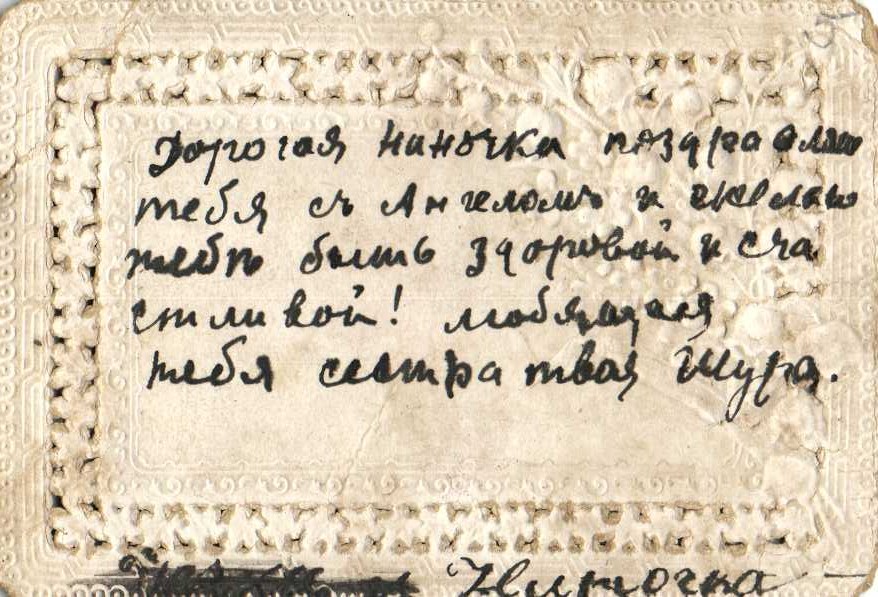 Дорогая Ниночка поздравляю
тебя съ Ангеломъ и желаю
тебѣ быть здоровой и сча
стливой! любящая
тебя сестра твоя Шура.